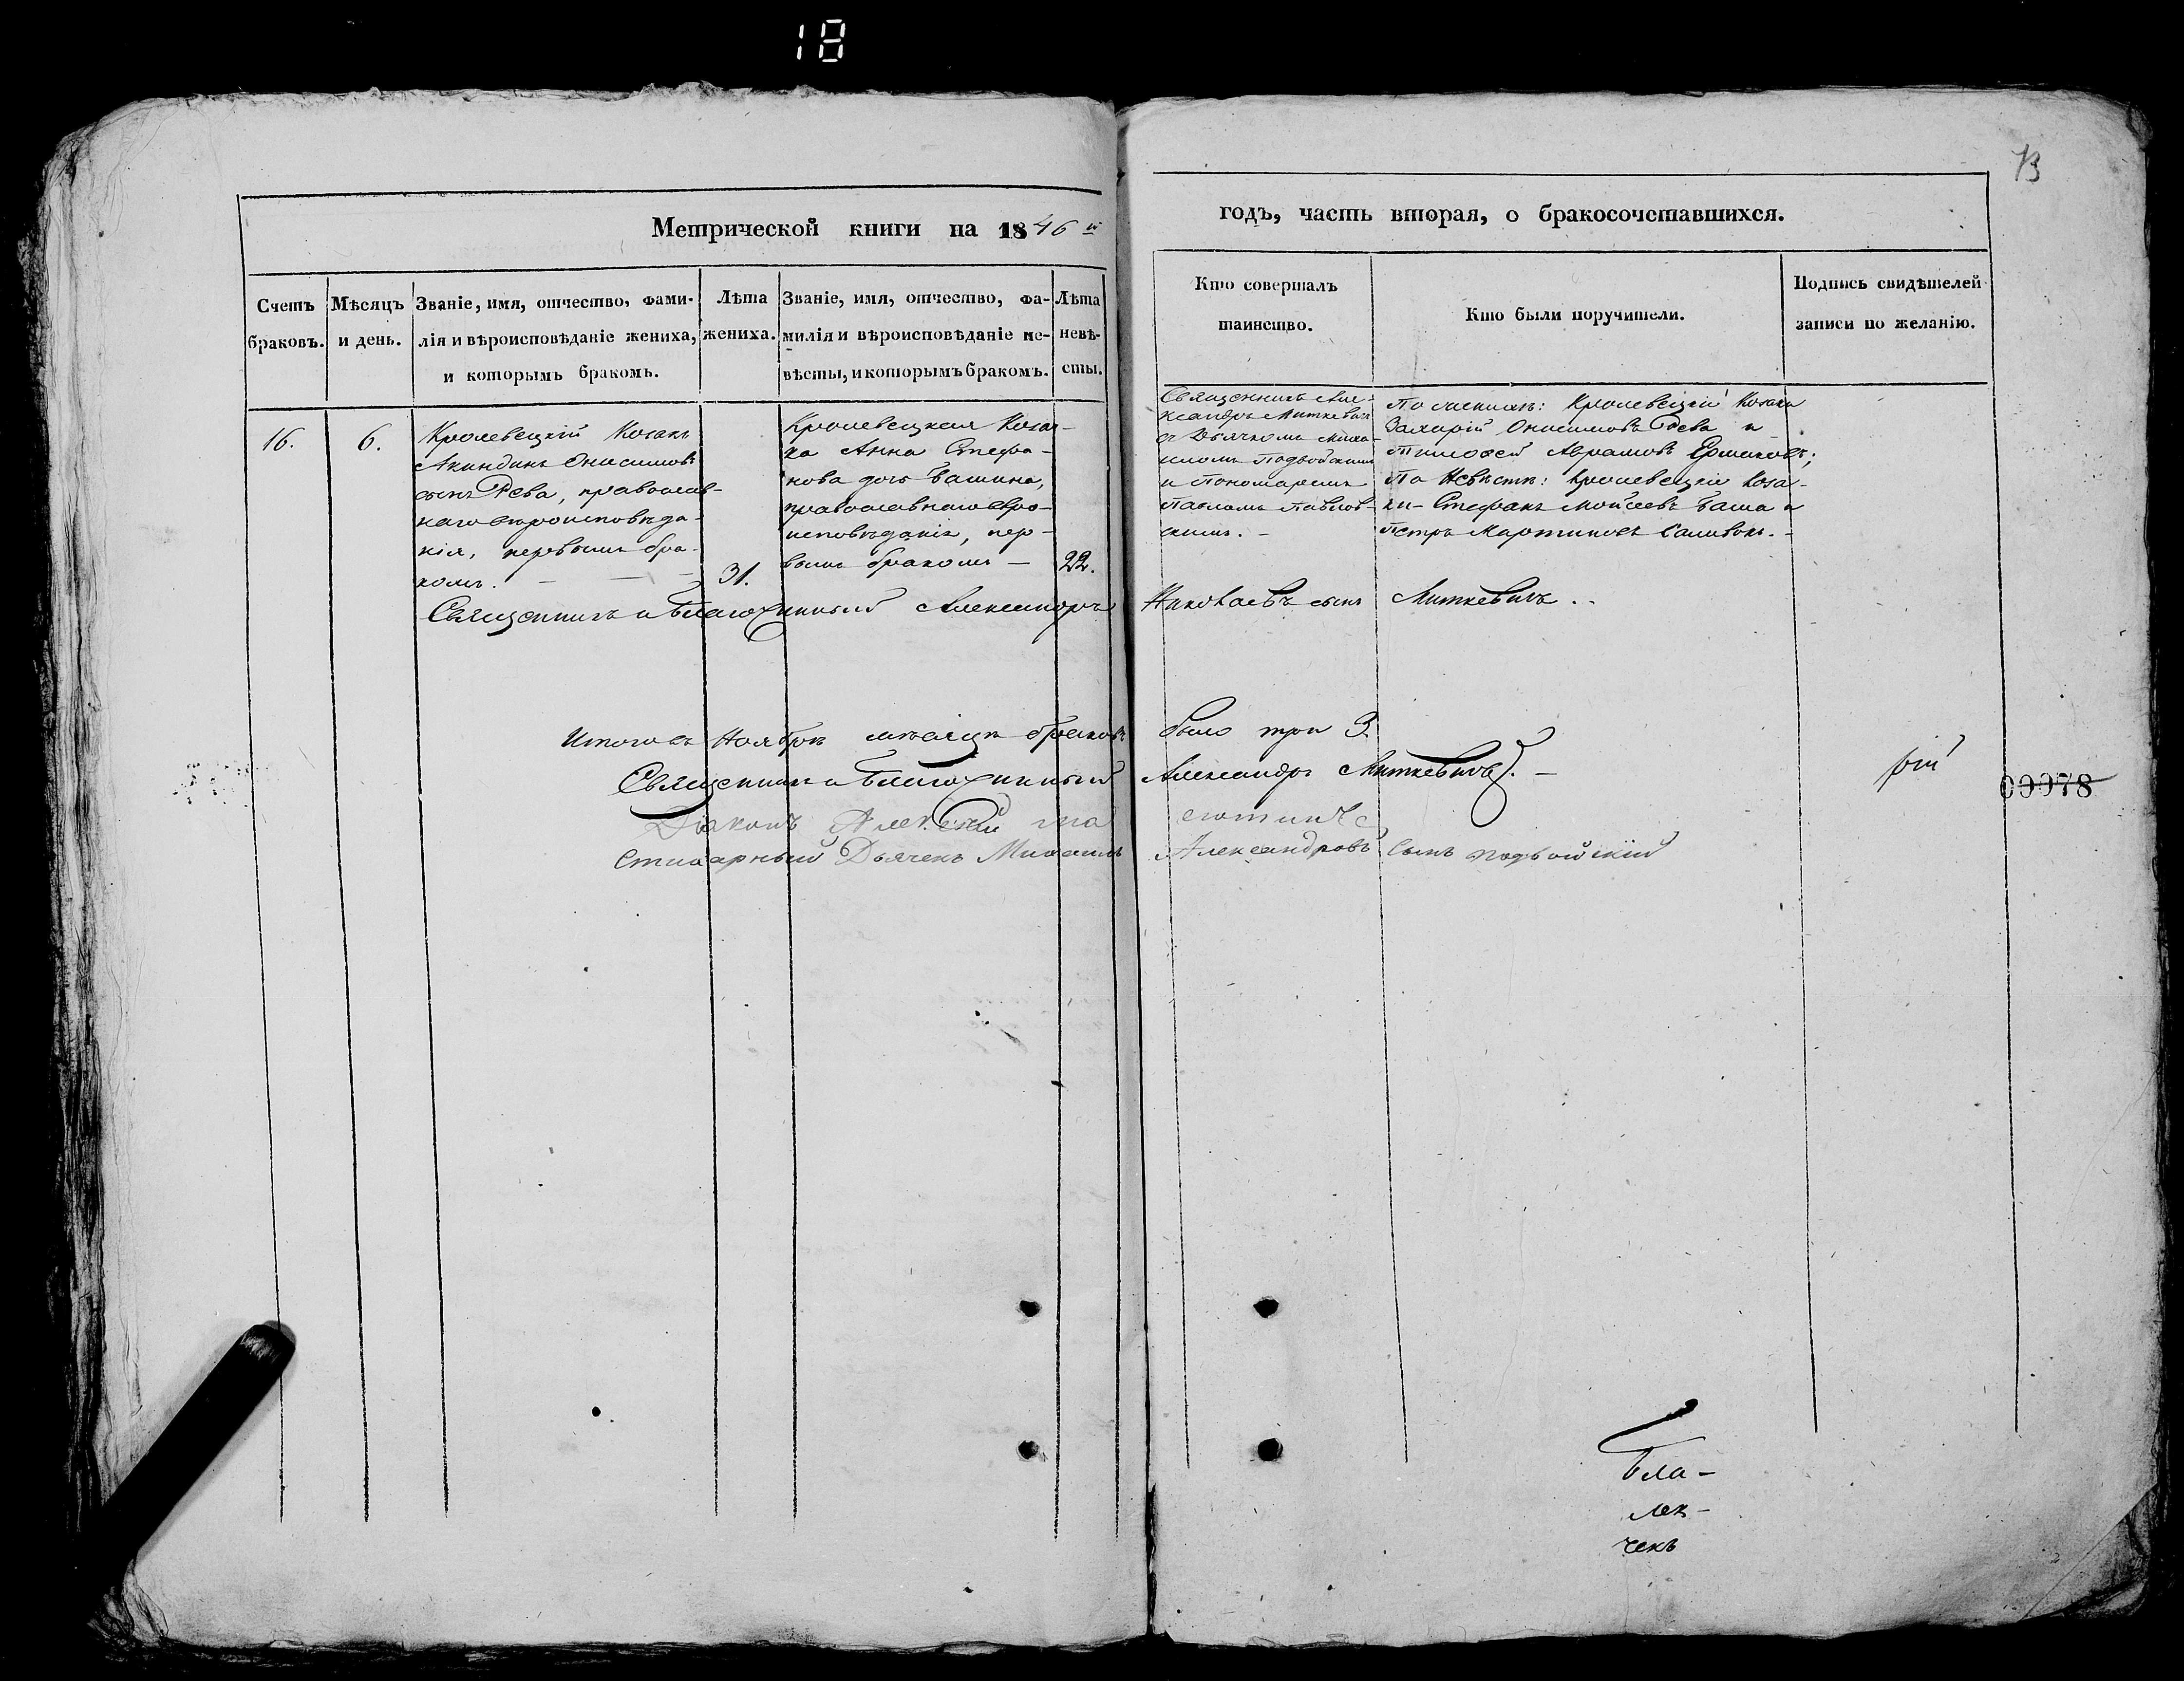 18
73
Метрической книги на 1846й
годъ, часть вторая, о бракосочетавшихся.
Счетъ браковъ.
Мѣсяцъ и день.
Званіе, имя, отчество, фами-
лія и вѣроисповѣданіе жениха,
и которымъ бракомъ.
Лѣта
жениха.
Званіе, имя, отчество, фа-
милія и вѣроисповѣданіе не-
вѣсты, и которымъ бракомъ.
Лѣта
невѣ-
сты.
Кто совершалъ
таинство.
Кто были поручители.
Подпись свидѣтелей
записи по желанію.
16.
6.
Кролевецкій Козакъ
Акиндинъ Онисимовъ
сынъ Рева, православ-
наго вѣроисповѣда-
нія, первымъ бра-
комъ.
31.
Кролевецкая Козач-
ка Анна Стефа-
нова дочь Башина,
православнаго вѣро-
исповѣданія, пер-
вымъ бракомъ —
22.
Священникъ Але-
ксандръ Миткевичъ
съ Дьячкомъ Миха-
иломъ Подвойскимъ
и Пономаремъ
Павломъ Павлов-
скимъ. -
По женихѣ: Кролевецкій Козаки
Захарій Онисимовъ Рева и
Тимофей Аврамовъ Ермаковъ;
По Невѣстѣ: Кролевецкіе Коза-
ки - Стефанъ Мойсеевъ Баша и
Петръ Мартиновъ Саливонъ. -
Священникъ и Благочинный Александръ Николаевъ сынъ Миткевичъ..
Итого въ Ноябрѣ мѣсяцѣ браковъ было три 3.
Священникъ и Благочинный Александръ Миткевичъ. —
Діаконъ Алексѣй
Стихарный Дьячекъ Михаилъ Александровъ Сынъ Подвойскій
рій
00078